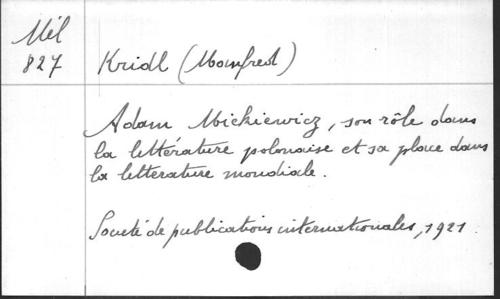 Mél
827
Kridl (Manfred)
Adam Mickiewicz, son rôle dans
la littérature polonaise et sa place dans
la litterature mondiale.
Société de publications internationales, 1921.